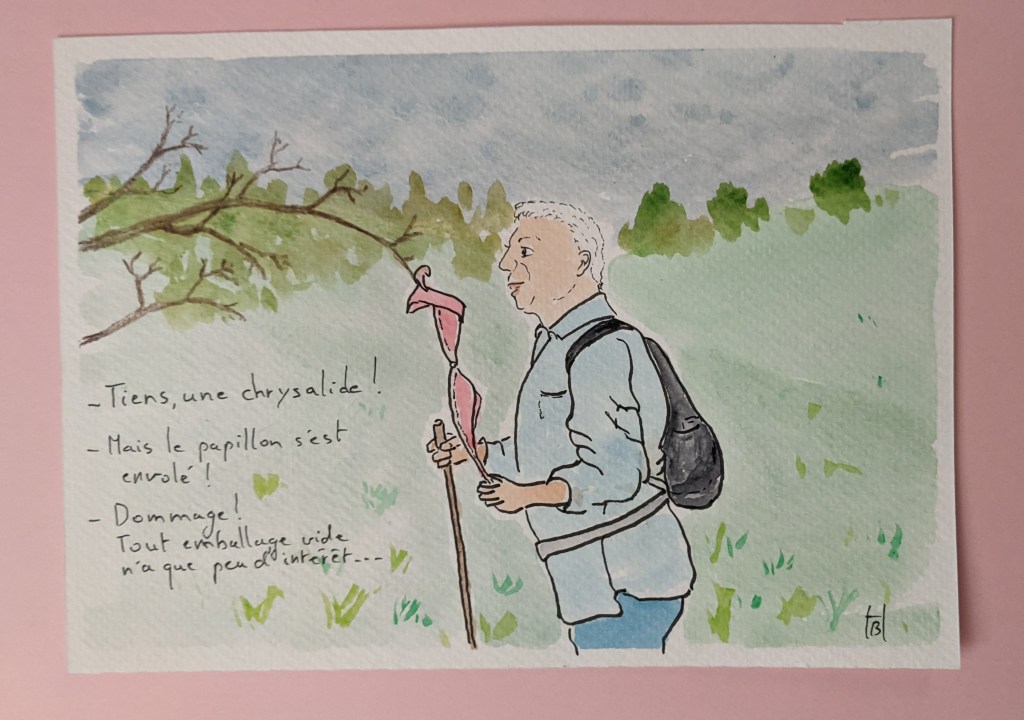 - Tiens, une chrysalide !
- Mais le papillon s'est
envolé !
- Dommage !
Tout emballage vide
n'a que peu d'intérêt...